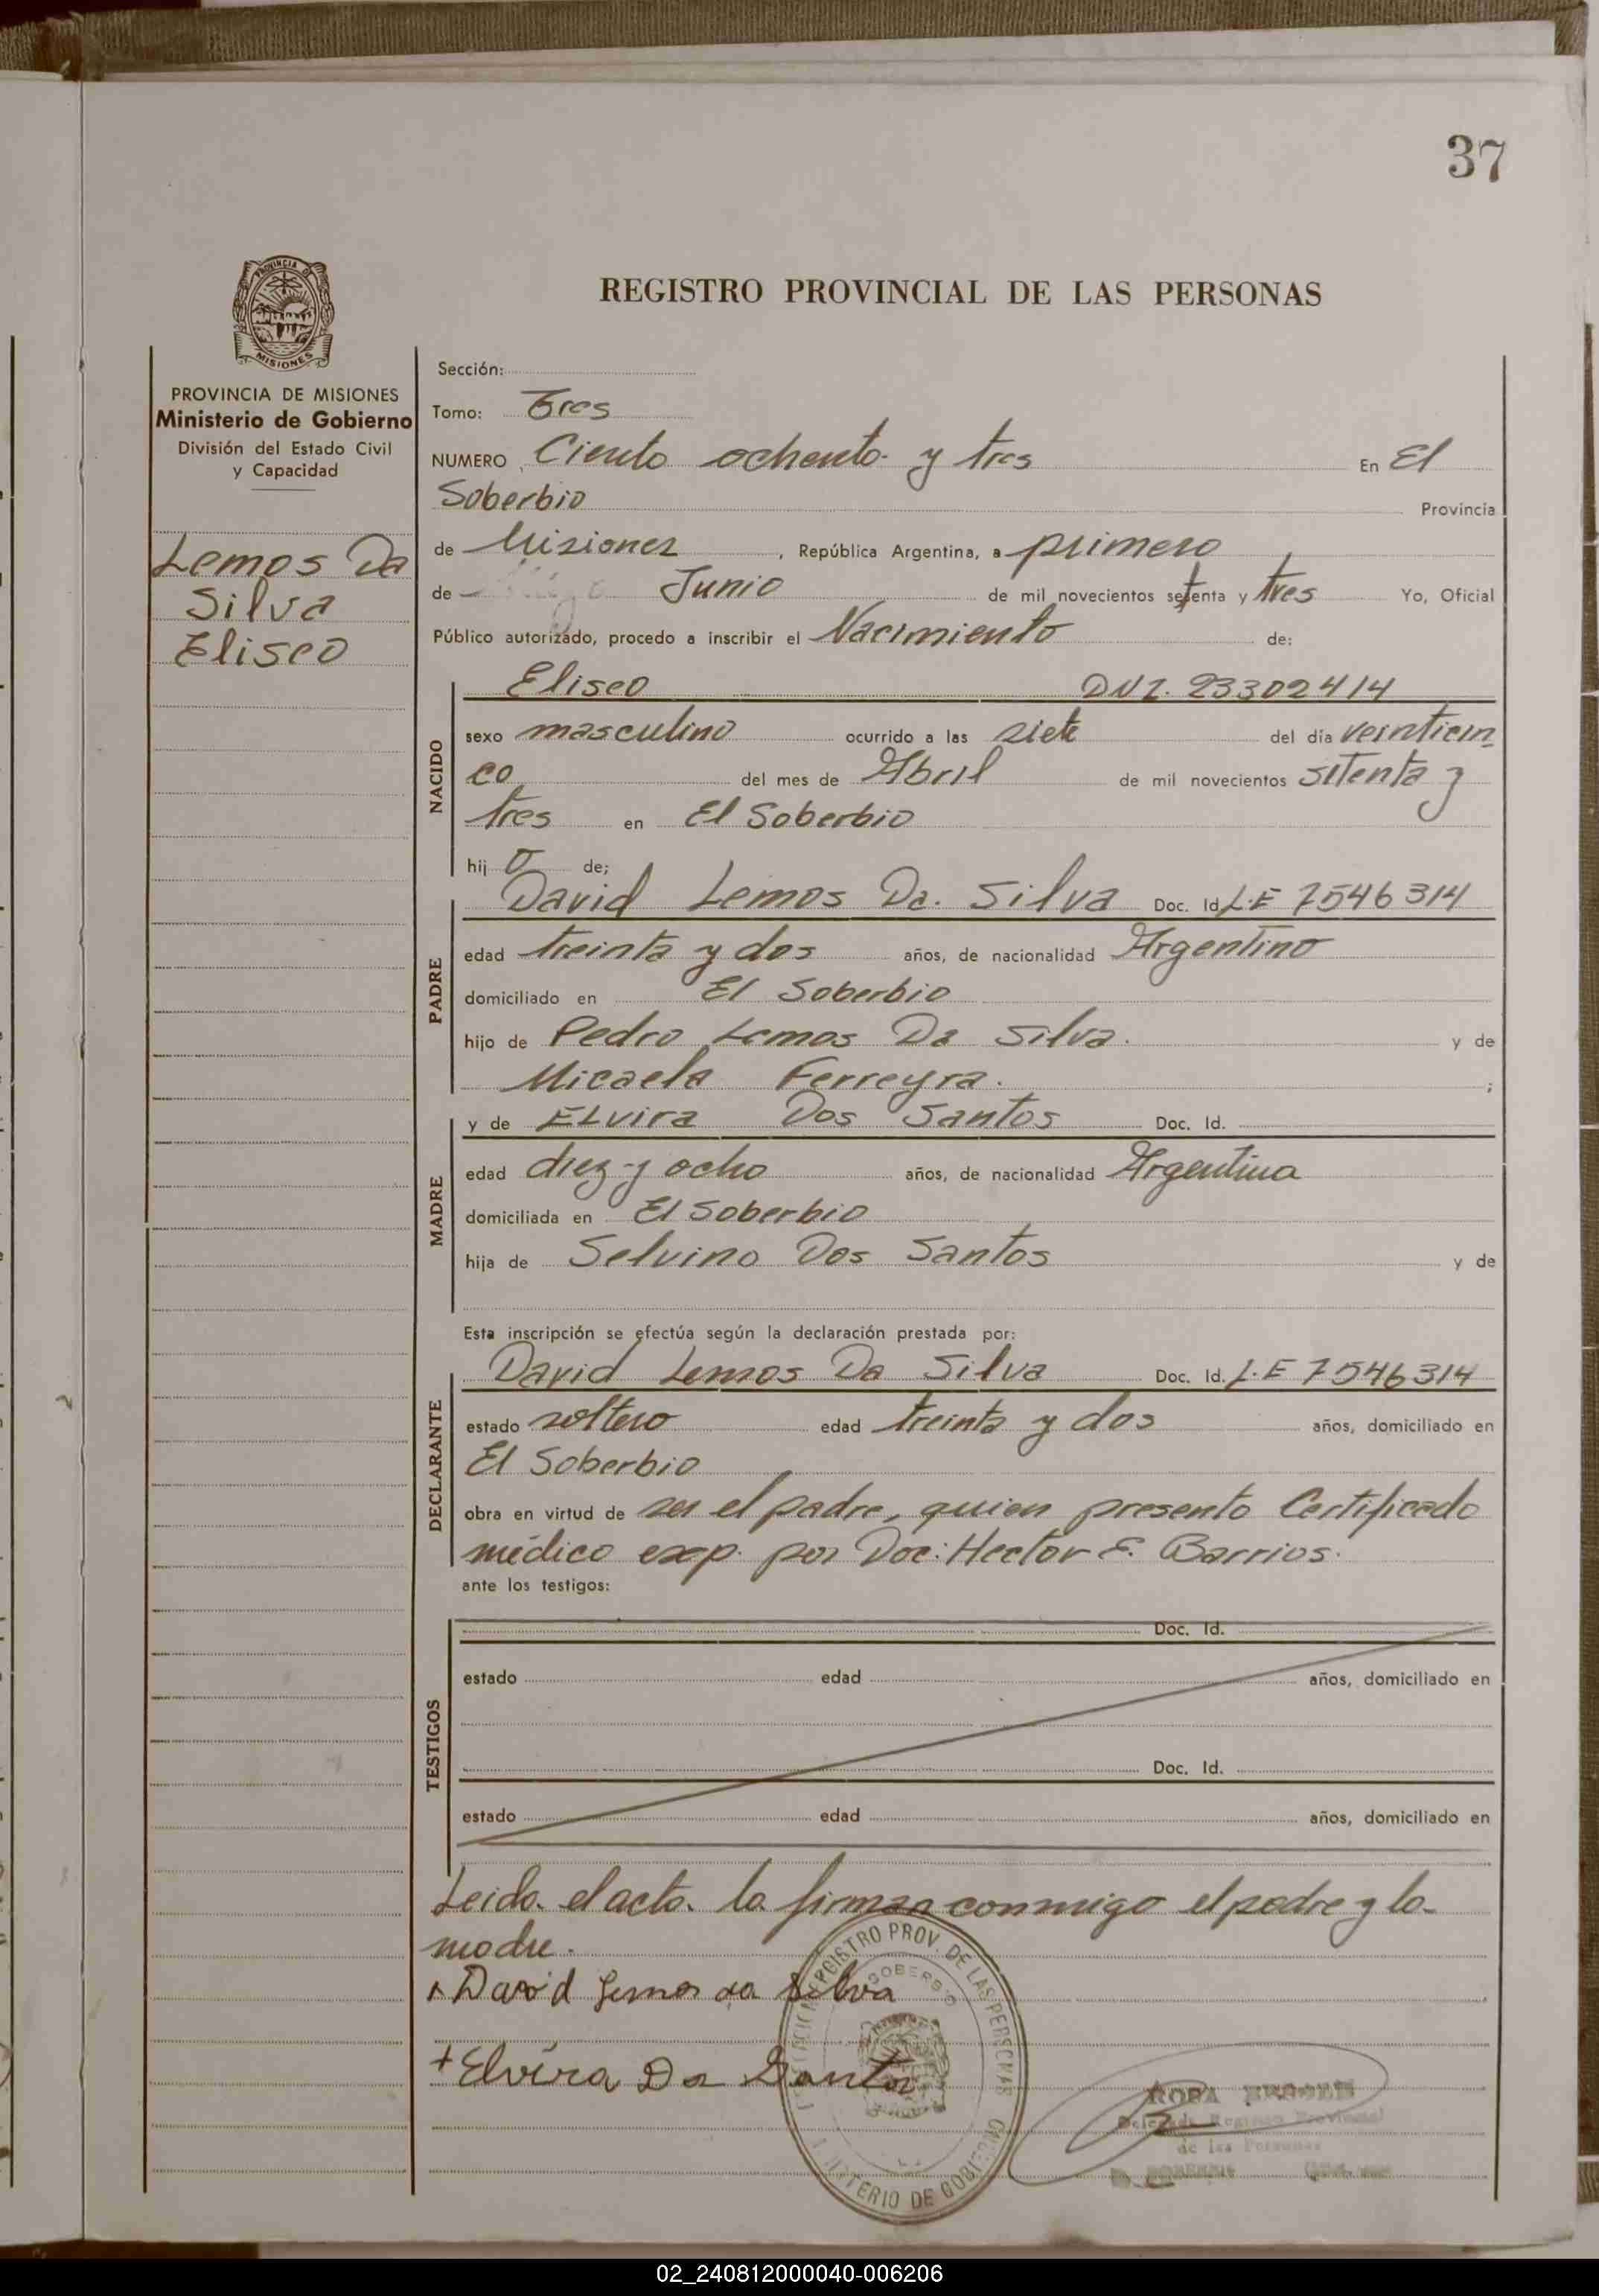 37
PROVINCIA DE
MISIONES
REGISTRO PROVINCIAL DE LAS PERSONAS
PROVINCIA DE MISIONES
Ministerio de Gobierno
División del Estado Civil
y Capacidad
Lemos Da
Silva
Eliseo
Sección:
Tomo: Tres
NUMERO Ciento ochenta y tres En El
Soberbio Provincia
de Misiones, República Argentina, a primero
de Junio de mil novecientos setenta y tres Yo, Oficial
Público autorizado, procedo a inscribir el Nacimiento de:
NACIDO
Eliseo DNI. 23302414
sexo masculino ocurrido a las siete del día veinticin
co del mes de Abril de mil novecientos setenta y
tres en El Soberbio
hijo de;
PADRE
David Lemos Da. Silva Doc. Id. L.E 7546314
edad treinta y dos años, de nacionalidad Argentino
domiciliado en El Soberbio
hijo de Pedro Lemos Da Silva. y de
Micaela Ferreyra. ;
MADRE
y de ELvira Dos Santos Doc. Id.
edad diez y ocho años, de nacionalidad Argentina
domiciliada en El Soberbio
hija de Selvino Dos Santos y de
Esta inscripción se efectúa según la declaración prestada por:
DECLARANTE
David Lemos Da Silva Doc. Id. L.E 7546314
estado soltero edad treinta y dos años, domiciliado en
El Soberbio
obra en virtud de ser el padre, quien presento Certificado
médico exp. por Doc: Hector E. Barrios.
ante los testigos:
TESTIGOS
Doc. Id.
estado edad años, domiciliado en
Doc. Id.
estado edad años, domiciliado en
Leida el acta la firman conmigo el padre y la
madre.
David Lemos da Silva
+ Elvira Da Santos
REGISTRO PROV. DE LAS PERSONAS
SOBERBIO
MINISTERIO DE GOBIERNO
ROSA
Delegada Registro Provincial
de las Personas
02_240812000040-006206